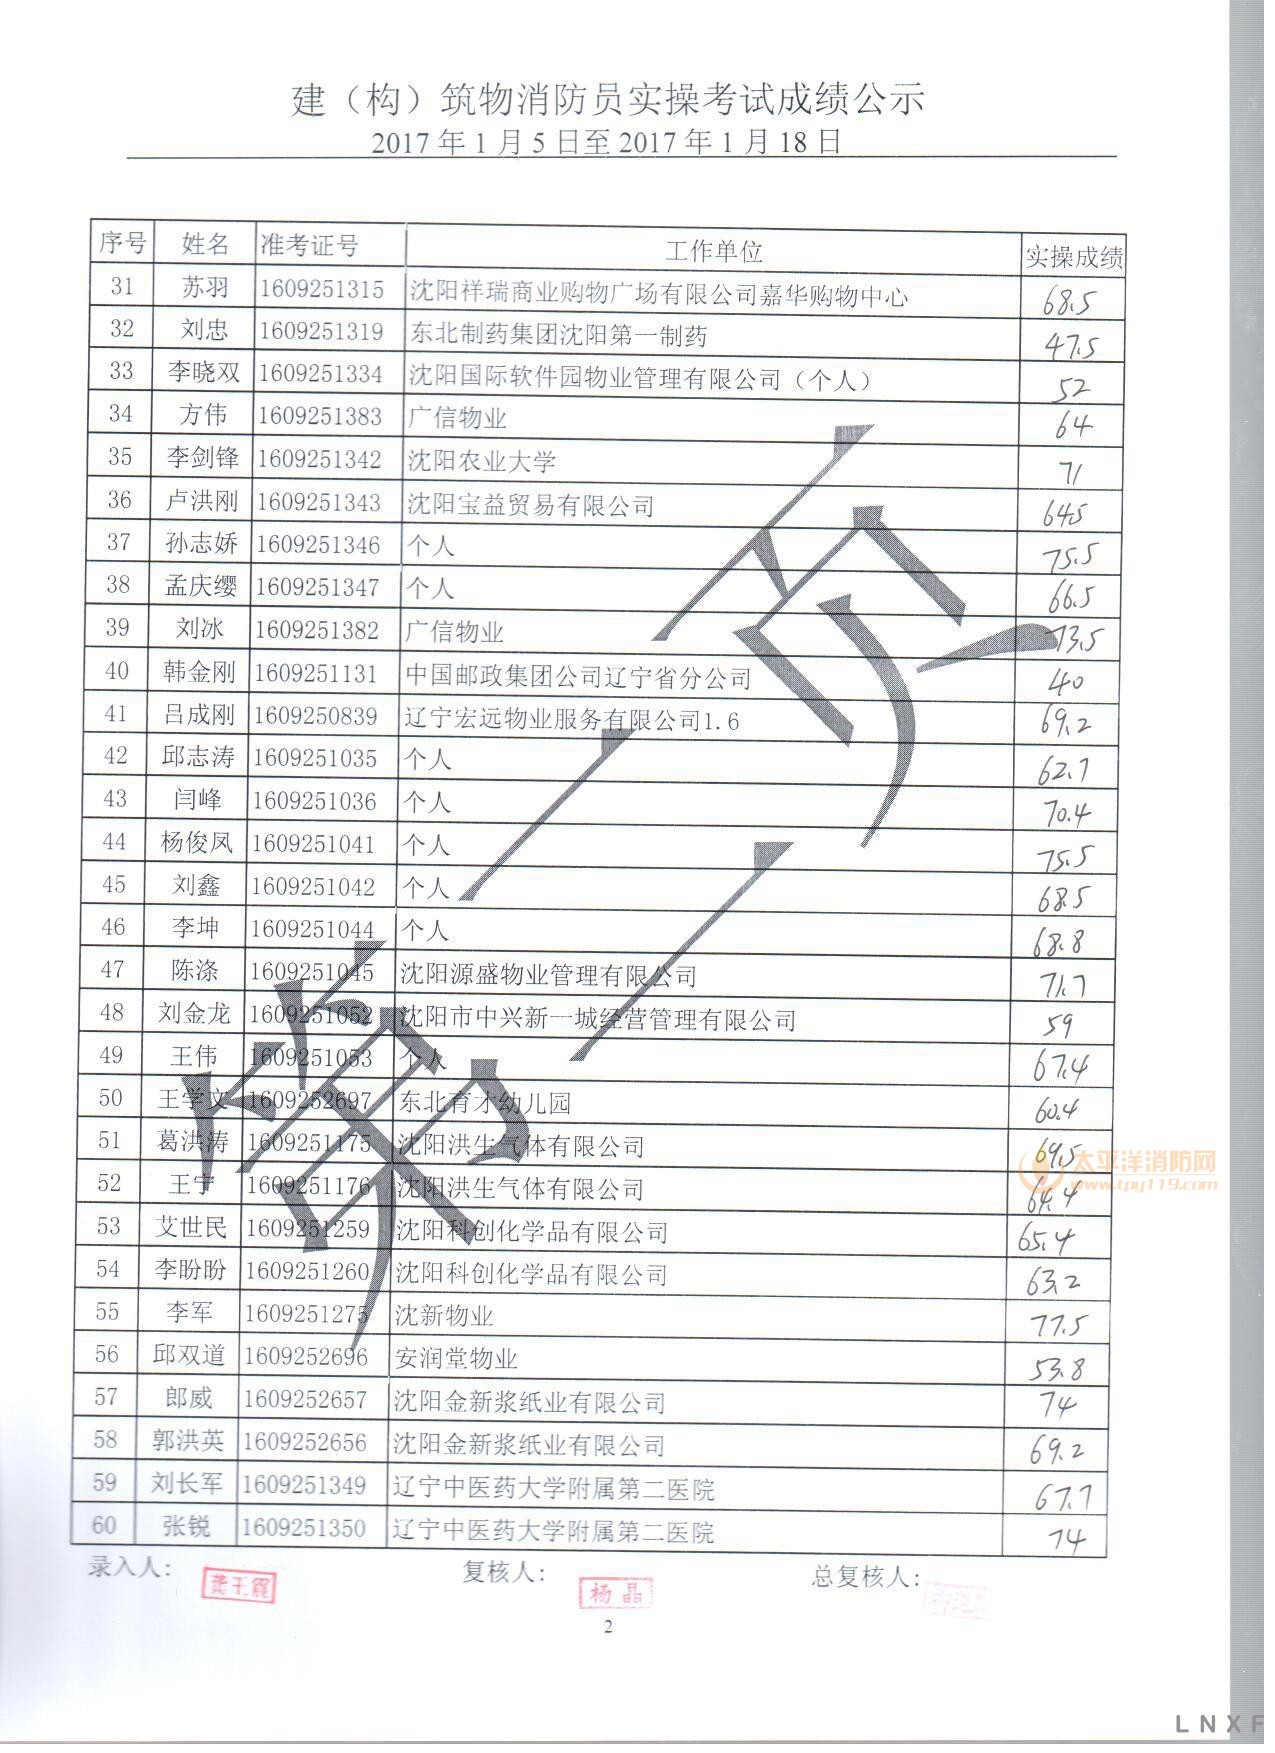 建（构）筑物消防员实操考试成绩公示
2017年1月5日至2017年1月18日
序号 姓名 准考证号 工作单位 实操成绩
31 苏羽 1609251315 沈阳祥瑞商业购物广场有限公司嘉华购物中心 68.5
32 刘忠 1609251319 东北制药集团沈阳第一制药 47.5
33 李晓双 1609251334 沈阳国际软件园物业管理有限公司（个人） 52
34 方伟 1609251383 广信物业 64
35 李剑锋 1609251342 沈阳农业大学 71
36 卢洪刚 1609251343 沈阳宝益贸易有限公司 64.5
37 孙志娇 1609251346 个人 75.5
38 孟庆缨 1609251347 个人 66.5
39 刘冰 1609251382 广信物业 73.5
40 韩金刚 1609251131 中国邮政集团公司辽宁省分公司 40
41 吕成刚 1609250839 辽宁宏远物业服务有限公司1.6 69.2
42 邱志涛 1609251035 个人 62.7
43 闫峰 1609251036 个人 70.4
44 杨俊凤 1609251041 个人 75.5
45 刘鑫 1609251042 个人 68.5
46 李坤 1609251044 个人 68.8
47 陈涤 1609251045 沈阳源盛物业管理有限公司 71.7
48 刘金龙 1609251052 沈阳市中兴新一城经营管理有限公司 59
49 王伟 1609251053 个人 67.4
50 王学文 1609252697 东北育才幼儿园 60.4
51 葛洪涛 1609251175 沈阳洪生气体有限公司 69.5
52 王宁 1609251176 沈阳洪生气体有限公司 64.4
53 艾世民 1609251259 沈阳科创化学品有限公司 65.4
54 李盼盼 1609251260 沈阳科创化学品有限公司 63.2
55 李军 1609251275 沈新物业 77.5
56 邱双道 1609252696 安润堂物业 53.8
57 郎威 1609252657 沈阳金新浆纸业有限公司 74
58 郭洪英 1609252656 沈阳金新浆纸业有限公司 69.2
59 刘长军 1609251349 辽宁中医药大学附属第二医院 67.7
60 张锐 1609251350 辽宁中医药大学附属第二医院 74
第二页
太平洋消防网
www.tpy119.com
录入人： 龚玉震 复核人： 杨晶 总复核人：
2
LNXF